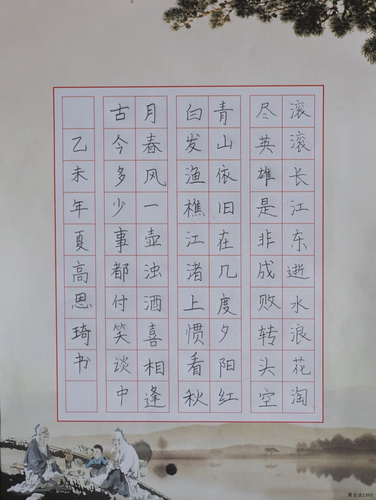 滚滚长江东逝水浪花淘
尽英雄是非成败转头空
青山依旧在几度夕阳红
白发渔樵江渚上惯看秋
月春风一壶浊酒喜相逢
古今多少事都付笑谈中
乙未年夏高思琦书